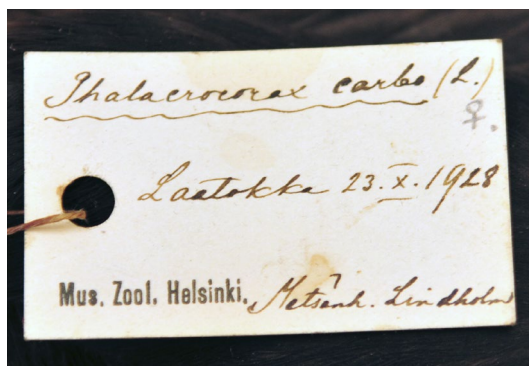 Phalacrocorax carbo (L.)
♀.
Laatokka 23.X.1928
Mus. Zool. Helsinki, Metsänh. Lindholm